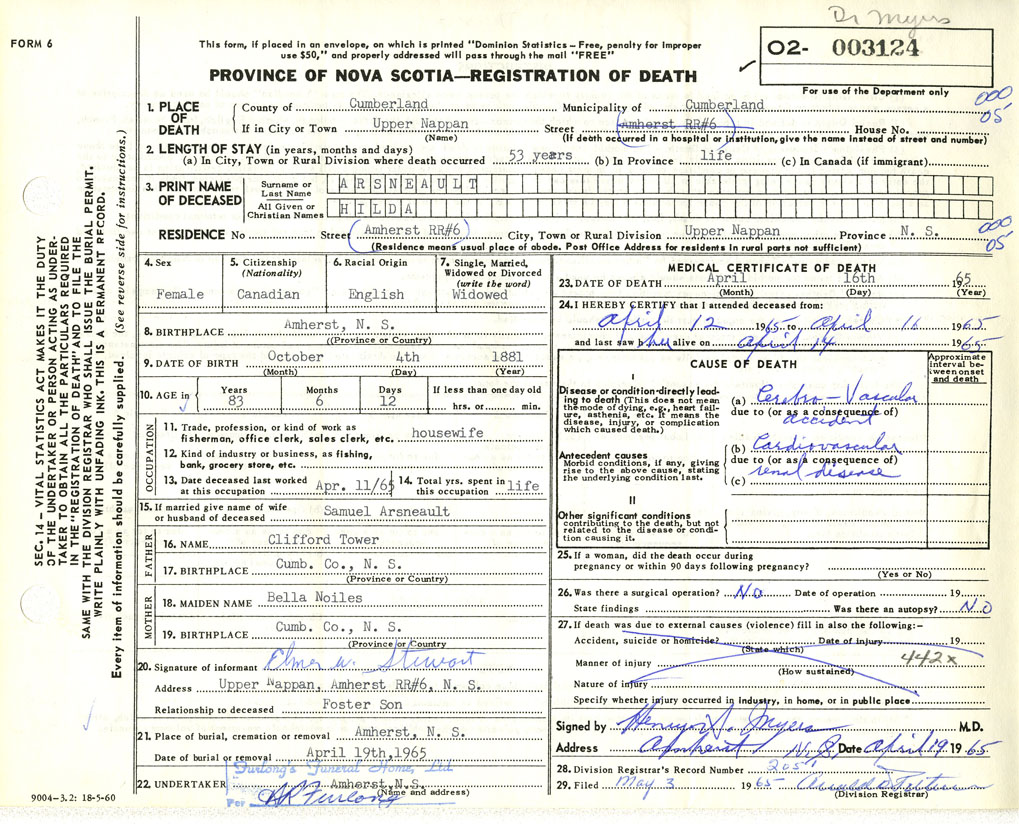 Dr Myers
FORM 6
This form, if placed in an envelope, on which is printed "Dominion Statistics – Free, penalty for improper
use $50," and properly addressed will pass through the mail "FREE"
O2- 003124
PROVINCE OF NOVA SCOTIA—REGISTRATION OF DEATH
For use of the Department only
000
05
1. PLACE OF DEATH
County of Cumberland Municipality of Cumberland
If in City or Town Upper Nappan Street Amherst RR#6 House No.
(Name) (If death occurred in a hospital or institution, give the name instead of street and number)
2. LENGTH OF STAY (in years, months and days)
(a) In City, Town or Rural Division where death occurred 53 years (b) In Province life (c) In Canada (if immigrant)
3. PRINT NAME OF DECEASED
Surname or Last Name ARSNEAULT
All Given or Christian Names HILDA
RESIDENCE No Street Amherst RR#6 City, Town or Rural Division Upper Nappan Province N. S.
(Residence means usual place of abode. Post Office Address for residents in rural parts not sufficient)
000
05
4. Sex
Female
5. Citizenship
(Nationality)
Canadian
6. Racial Origin
English
7. Single, Married, Widowed or Divorced
(write the word)
Widowed
8. BIRTHPLACE Amherst, N. S.
((Province or Country)
9. DATE OF BIRTH October 4th 1881
(Month) (Day) (Year)
10. AGE in
Years Months Days If less than one day old
83 6 12 hrs. or min.
OCCUPATION
11. Trade, profession, or kind of work as
fisherman, office clerk, sales clerk, etc. housewife
12. Kind of industry or business, as fishing,
bank, grocery store, etc.
13. Date deceased last worked
at this occupation Apr. 11/65
14. Total yrs. spent in
this occupation life
15. If married give name of wife
or husband of deceased Samuel Arsneault
FATHER
16. NAME Clifford Tower
17. BIRTHPLACE Cumb. Co., N. S.
(Province or Country)
MOTHER
18. MAIDEN NAME Bella Noiles
19. BIRTHPLACE Cumb. Co., N. S.
(Province or Country
20. Signature of informant Elmer W. Stewart
Address Upper Nappan, Amherst RR#6, N. S.
Relationship to deceased Foster Son
21. Place of burial, cremation or removal Amherst, N. S.
Date of burial or removal April 19th, 1965
Furlong's Funeral Home, Ltd.
22. UNDERTAKER Amherst, N.S.
(Name and address)
Per Furlong
MEDICAL CERTIFICATE OF DEATH
23. DATE OF DEATH April 16th 1965
(Month) (Day) (Year)
24. I HEREBY CERTIFY that I attended deceased from:
April 12 1965 to April 16 1965
and last saw her alive on April 14 1965
CAUSE OF DEATH
Approximate interval between onset and death
I
Disease or condition directly leading
to death (This does not mean
the mode of dying, e.g., heart failure,
asthenia, etc. It means the
disease, injury, or complication
which caused death.)
(a) Cerebro-Vascular
due to (or as a consequence of)
accident
Antecedent causes
Morbid conditions, if any, giving
rise to the above cause, stating
the underlying condition last.
(b) Cardiovascular
due to (or as a consequence of)
renal disease
(c)
II
Other significant conditions
contributing to the death, but not
related to the disease or condition
causing it.
25. If a woman, did the death occur during
pregnancy or within 90 days following pregnancy?
(Yes or No)
26. Was there a surgical operation? No Date of operation 19
State findings Was there an autopsy? No
27. If death was due to external causes (violence) fill in also the following:–
Accident, suicide or homicide? Date of injury 19
(State which)
Manner of injury 442x
(How sustained)
Nature of injury
Specify whether injury occurred in industry, in home, or in public place
Signed by Myers M.D.
Address Amherst N.S. Date April 19 1965
28. Division Registrar's Record Number 205
29. Filed May 3 1965
(Division Registrar)
SEC. 14 – VITAL STATISTICS ACT MAKES IT THE DUTY
OF THE UNDERTAKER OR PERSON ACTING AS UNDERTAKER
TO OBTAIN ALL THE PARTICULARS REQUIRED
IN THE "REGISTRATION OF DEATH" AND TO FILE THE
SAME WITH THE DIVISION REGISTRAR WHO SHALL ISSUE THE BURIAL PERMIT.
WRITE PLAINLY WITH UNFADING INK. THIS IS A PERMANENT RECORD.
Every item of information should be carefully supplied. (See reverse side for instructions.)
9004–3.2: 18-5-60